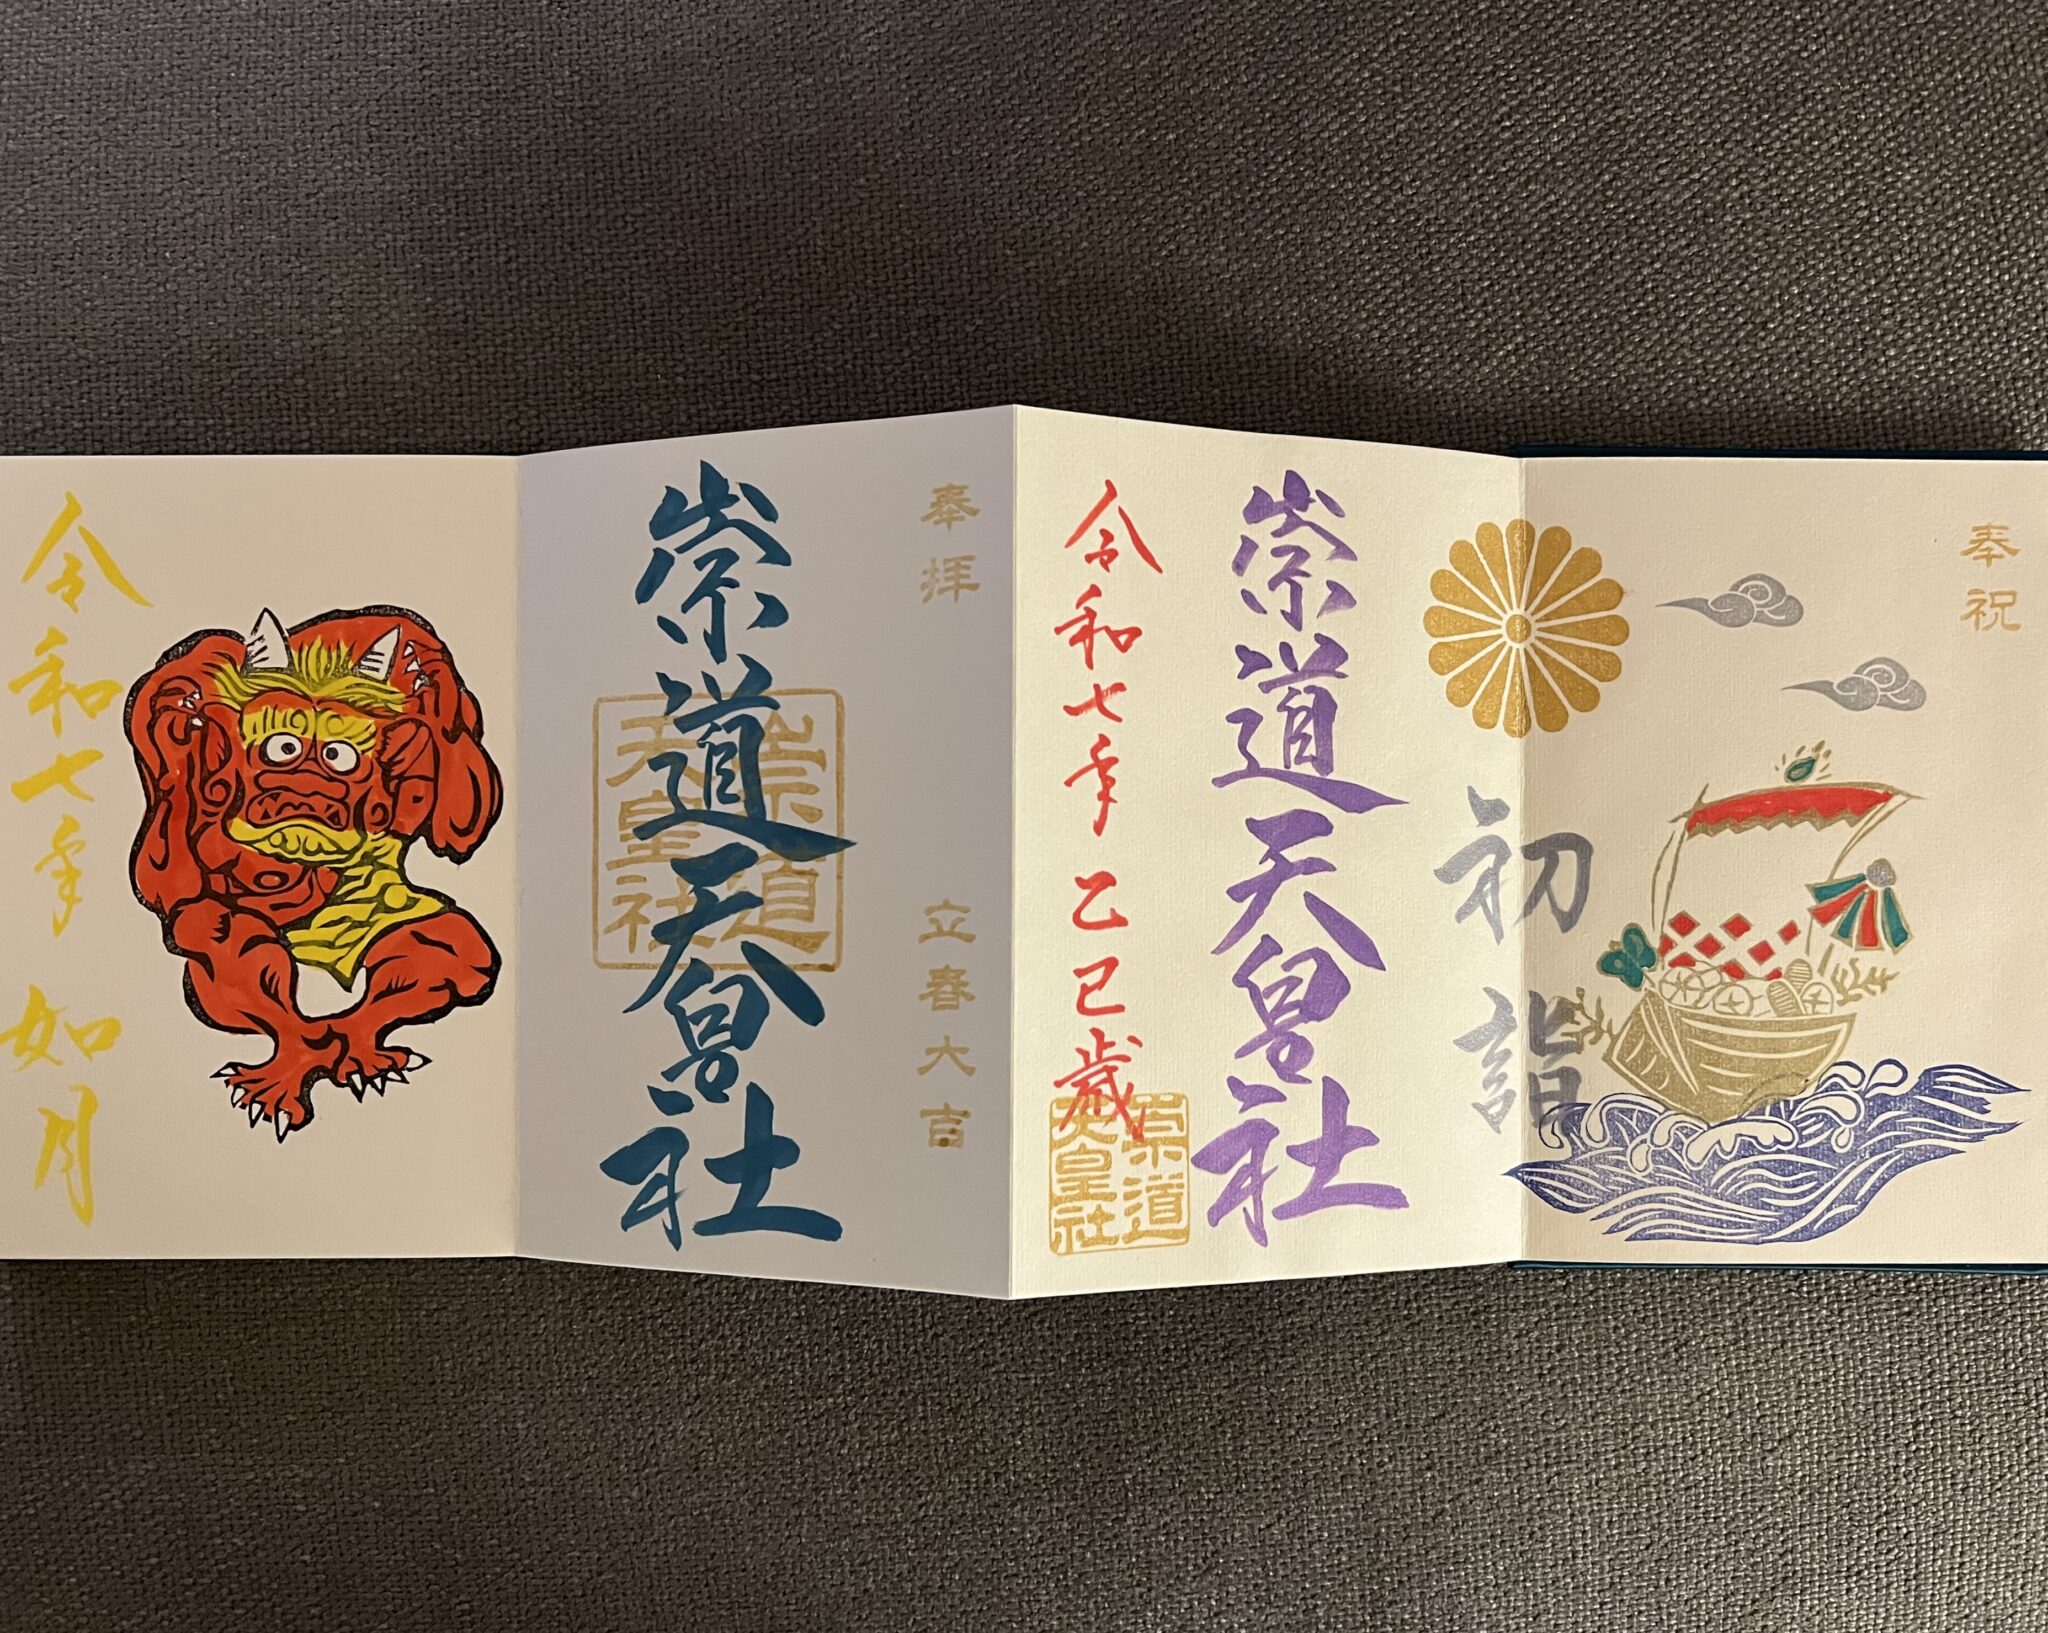 奉祝
初詣
崇道天皇社
令和七年 乙巳歳
崇道
天皇社
奉拝
立春大吉
崇道天皇社
崇道
天皇社
令和七年 如月